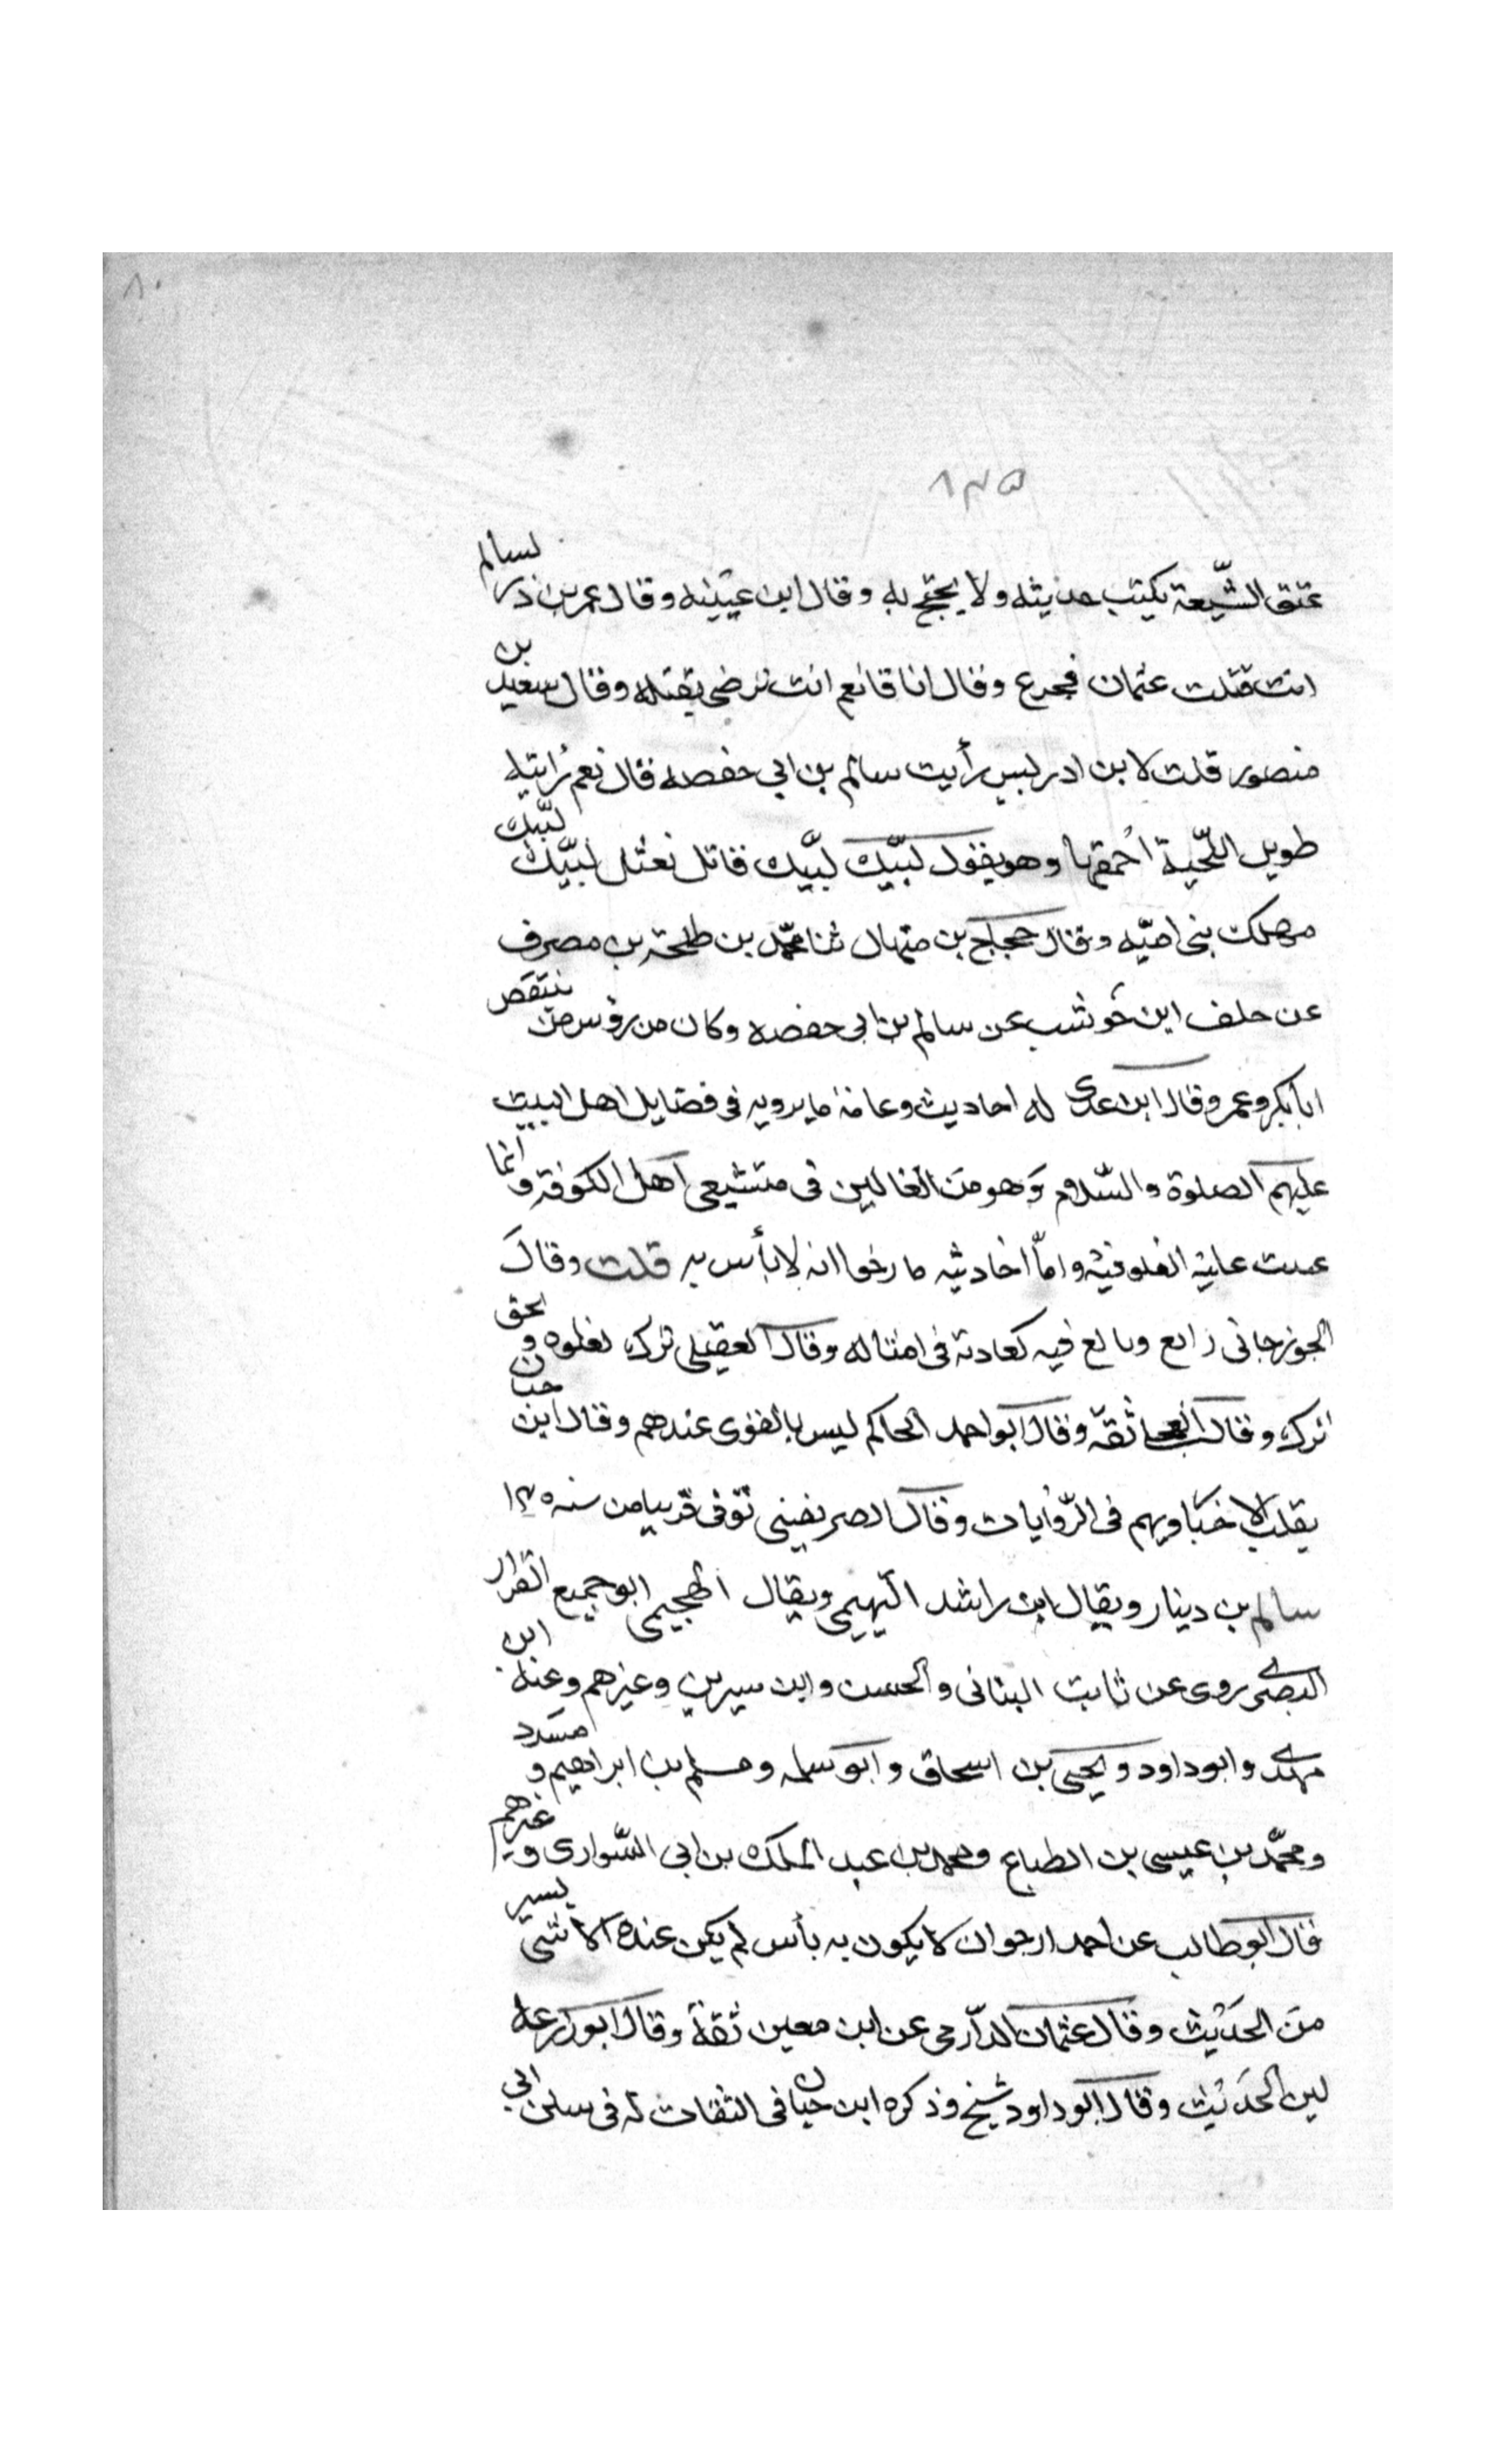 ٨٠
٨٣٥
عتق الشّيعة يكتب حديثه ولا يحتج به وقال ابن عيينه وقال عمر بن ذر لسالم
انت قتلت عثمان فجزع وقال انا قا نعم انت ترضى بقتله وقال سعيد بن
منصور قلت لابن ادريس رأيت سالم بن ابي حفصه قال نعم رايته
طويل اللّحية احمقها وهو يقول لبّيك لبّيك قاتل نعثل لبّيك لبّيك
مهلك بني اميّه وقال حجاج بن منهال ثنا محمّد بن طلحة بن مصرف
عن خلف ابن حوشب عن سالم بن ابي حفصه وكان من رؤس من ينتقص
ابا بكر وعمر وقال ابن عدى له احاديث وعامة ما يرويه في فضايل اهل البيت
عليهم الصلوة والسّلام وهو من الغالين في متشيعي اهل الكوفة وانما
عيب عليه الغلو فيه وامّا احاديثه فارجوا انه لا بأس به قلت وقال
الجوزجاني زايع وبالغ فيه كعادته في امثاله وقال العقيلي ترك لغلوه وبحق
ترك وقال العجلي ثقة وقال ابو احمد الحاكم ليس بالقوى عندهم وقال ابن حبان
يقلب الاخبار ويهم في الرّوايات وقال الصريفيني توفى قريبا من سنه ١٤٠
سالم بن دينار ويقال ابن راشد التميمي ويقال الهجيمي ابو جميع القزاز
البصري روى عن ثابت البناني والحسن وابن سيرين وغيرهم وعنه ابن
مهدى وابو داود ويحيى بن اسحاق وابو سلمه ومسلم بن ابراهيم ومسدد
ومحمّد بن عيسى بن الطباع ومحمد بن عبد الملك بن ابي الشّوارى وغيرهم
قال ابو طالب عن احمد ارجو ان لا يكون به بأس لم يكن عنده الا شى يسير
من الحديث وقال عثمان الدّارمي عن ابن معين ثقة وقال ابو زرعه
لين الحديث وقال ابو داود شيخ وذكره ابن حبان في الثقات له في سنن ابي